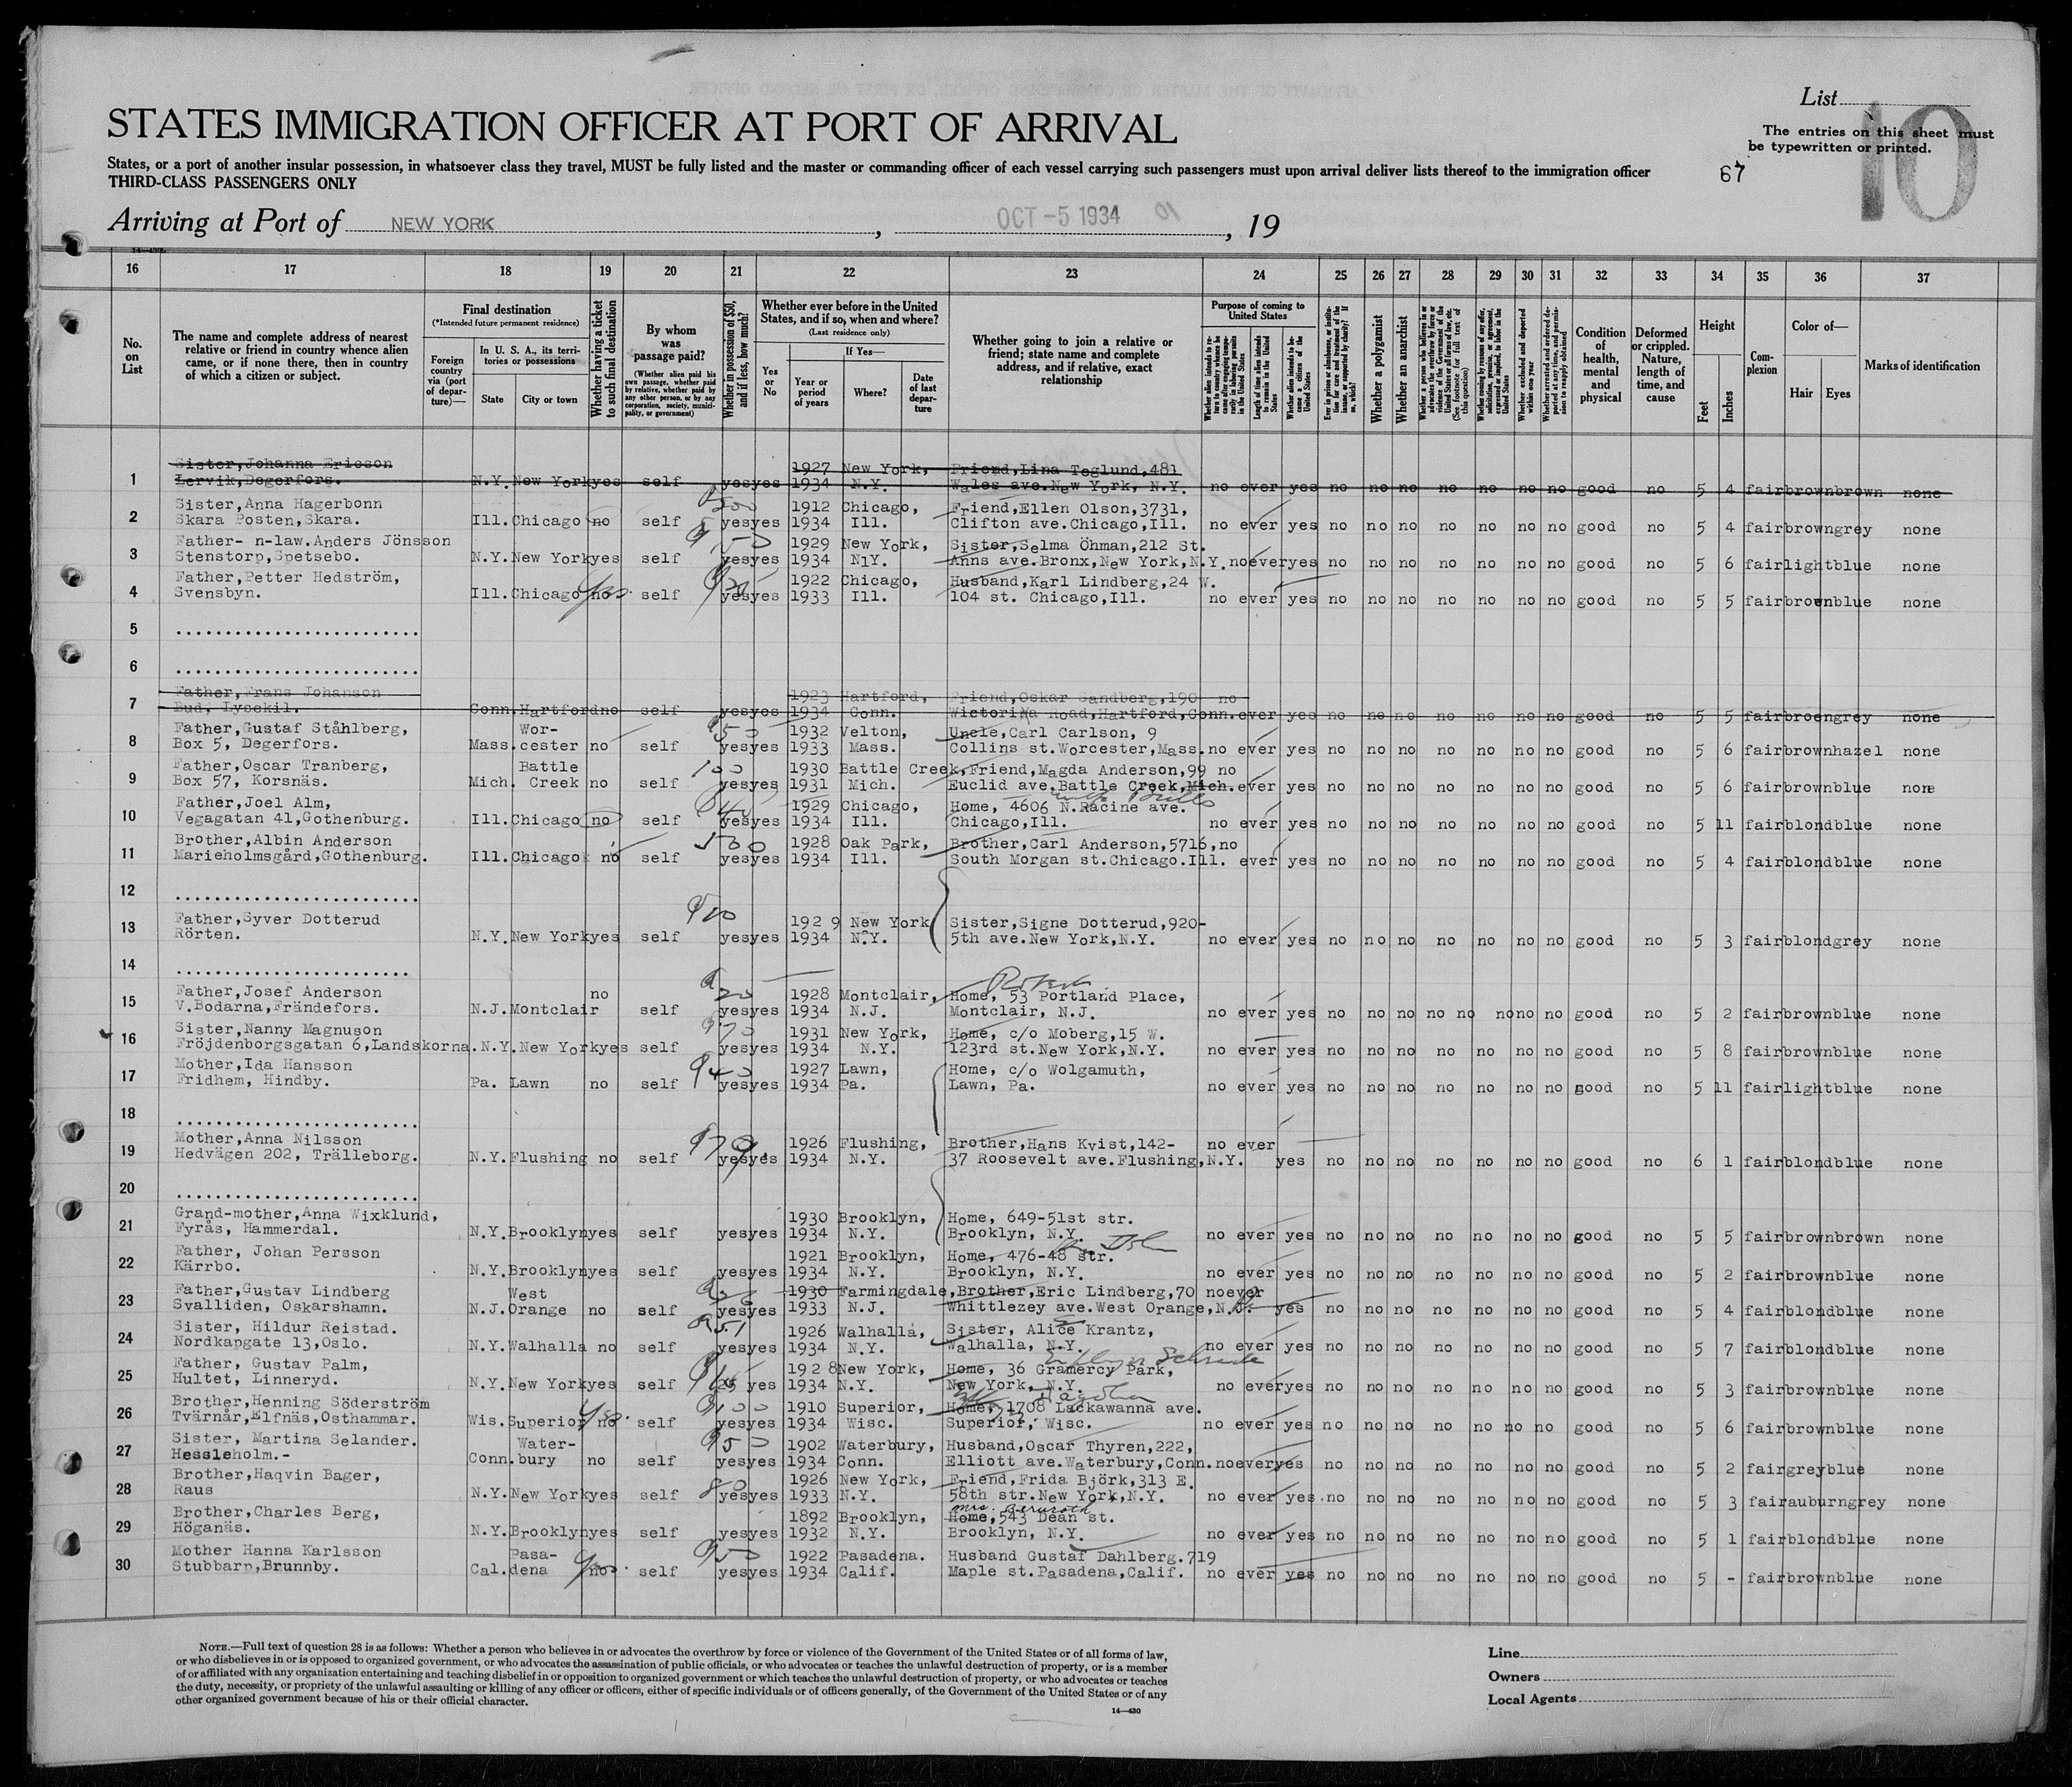 List
10
STATES IMMIGRATION OFFICER AT PORT OF ARRIVAL
The entries on this sheet must
be typewritten or printed.
States, or a port of another insular possession, in whatsoever class they travel, MUST be fully listed and the master or commanding officer of each vessel carrying such passengers must upon arrival deliver lists thereof to the immigration officer
67
THIRD-CLASS PASSENGERS ONLY
Arriving at Port of NEW YORK, OCT -5 1934, 19
16 17 18 19 20 21 22 23 24 25 26 27 28 29 30 31 32 33 34 35 36 37
No. on List
The name and complete address of nearest relative or friend in country whence alien came, or if none there, then in country of which a citizen or subject.
Final destination
(*Intended future permanent residence)
Foreign country via (port of departure)—
In U. S. A., its territories or possessions
State
City or town
Whether having a ticket to such final destination
By whom was passage paid?
(Whether alien paid his own passage, whether paid by relative, whether paid by any other person, or by any corporation, society, municipality, or government)
Whether in possession of $50, and if less, how much?
Whether ever before in the United States, and if so, when and where?
(Last residence only)
Yes or No
If Yes—
Year or period of years
Where?
Date of last departure
Whether going to join a relative or friend; state name and complete address, and if relative, exact relationship
Purpose of coming to United States
Length of time alien intends to remain in the United States
Whether alien intends to become a citizen of the United States
Whether a polygamist
Whether an anarchist
Whether excluded and deported within one year
Condition of health, mental and physical
Deformed or crippled. Nature, length of time, and cause
Height
Feet
Inches
Complexion
Color of—
Hair
Eyes
Marks of identification
Sister,Johanna Ericson 1927 New York, Friend,Lina Teglund,481
1 Lervik,Degerfors. N.Y. New York yes self yes yes 1934 N.Y. Wales ave.New York, N.Y. no ever yes no no no no no no no good no 5 4 fair brown brown none
Sister,Anna Hagerbonn 200 1912 Chicago, Friend,Ellen Olson,3731,
2 Skara Posten,Skara. Ill. Chicago no self yes yes 1934 Ill. Clifton ave.Chicago,Ill. no ever yes no no no no no no no good no 5 4 fair brown grey none
Father- n-law.Anders Jönsson 50 1929 New York, Sister,Selma Öhman,212 St.
3 Stenstorp,Spetsebo. N.Y. New York yes self yes yes 1934 N1Y. Anns ave.Bronx,New York,N.Y. no ever yes no no no no no no no good no 5 6 fair light blue none
Father,Petter Hedström, 1922 Chicago, Husband,Karl Lindberg,24 W.
4 Svensbyn. Ill. Chicago no yes self yes yes 1933 Ill. 104 st. Chicago,Ill. no ever yes no no no no no no no good no 5 5 fair brown blue none
5 ..........................
6 ..........................
Father,Frans Johanson 1923 Hartford, Friend,Oskar Sandberg,190 no
7 Bud, Lysekil. Conn. Hartford no self yes yes 1934 Conn. Wictoria Road,Hartford,Conn. ever yes no no no no no no no good no 5 5 fair broen grey none
Father,Gustaf Ståhlberg, Wor- 50 1932 Velton, Uncle,Carl Carlson, 9
8 Box 5, Degerfors. Mass. cester no self yes yes 1933 Mass. Collins st.Worcester,Mass. no ever yes no no no no no no no good no 5 6 fair brown hazel none
Father,Oscar Tranberg, Battle 100 1930 Battle Creek, Friend,Magda Anderson,99 no
9 Box 57, Korsnäs. Mich. Creek no self yes yes 1931 Mich. Euclid ave.Battle Creek,Mich. ever yes no no no no no no no good no 5 6 fair brown blue none
Father,Joel Alm, 1929 Chicago, Home, 4606 N.Racine ave.
10 Vegagatan 41,Gothenburg. Ill. Chicago no self yes yes 1934 Ill. Chicago,Ill. no ever yes no no no no no no no good no 5 11 fair blond blue none
Brother,Albin Anderson 500 1928 Oak Park, Brother,Carl Anderson,5716, no
11 Marieholmsgård,Gothenburg. Ill. Chicago no self yes yes 1934 Ill. South Morgan st.Chicago.Ill. ever yes no no no no no no no good no 5 4 fair blond blue none
12 ..........................
Father,Syver Dotterud 192 9 New York Sister,Signe Dotterud,920-
13 Rörten. N.Y. New York yes self yes yes 1934 N.Y. 5th ave.New York,N.Y. no ever yes no no no no no no no good no 5 3 fair blond grey none
14 .........................
Father,Josef Anderson no 20 1928 Montclair, Home, 53 Portland Place,
15 V.Bodarna,Frändefors. N.J. Montclair self yes yes 1934 N.J. Montclair, N.J. no ever yes no no no no no no no no good no 5 2 fair brown blue none
Sister,Nanny Magnuson 70 1931 New York, Home, c/o Moberg,15 W.
16 Fröjdenborgsgatan 6,Landskorna. N.Y. New York yes self yes yes 1934 N.Y. 123rd st.New York,N.Y. no ever yes no no no no no no no good no 5 8 fair brown blue none
Mother,Ida Hansson 40 1927 Lawn, Home, c/o Wolgamuth,
17 Fridhem, Hindby. Pa. Lawn no self yes yes 1934 Pa. Lawn, Pa. no ever yes no no no no no no no good no 5 11 fair light blue none
18 ..........................
Mother,Anna Nilsson 1926 Flushing, Brother,Hans Kvist,142- no ever
19 Hedvägen 202, Trälleborg. N.Y. Flushing no self yes yes 1934 N.Y. 37 Roosevelt ave.Flushing,N.Y. yes no no no no no no no good no 6 1 fair blond blue none
20 ..........................
Grand-mother,Anna Wixklund, 1930 Brooklyn, Home, 649-51st str.
21 Fyrås, Hammerdal. N.Y. Brooklyn yes self yes yes 1934 N.Y. Brooklyn, N.Y. no ever yes no no no no no no no good no 5 5 fair brown brown none
Father, Johan Persson 1921 Brooklyn, Home, 476-48 str.
22 Kärrbo. N.Y. Brooklyn yes self yes yes 1934 N.Y. Brooklyn, N.Y. no ever yes no no no no no no no good no 5 2 fair brown blue none
Father,Gustav Lindberg West 1930 Farmingdale, Brother,Eric Lindberg,70 no ever
23 Svalliden, Oskarshamn. N.J. Orange no self yes yes 1933 N.J. Whittlezey ave.West Orange,N.J. yes no no no no no no no good no 5 4 fair blond blue none
Sister, Hildur Reistad. 51 1926 Walhalla, Sister, Alice Krantz,
24 Nordkapgate 13,Oslo. N.Y. Walhalla no self yes yes 1934 N.Y. Walhalla, N.Y. no ever yes no no no no no no no good no 5 7 fair blond blue none
Father, Gustav Palm, 192 8 New York, Home, 36 Gramercy Park,
25 Hultet, Linneryd. N.Y. New York yes self yes 1934 N.Y. New York, N.Y. no ever yes no no no no no no no good no 5 3 fair brown blue none
Brother,Henning Söderström 100 1910 Superior, Home, 1708 Lackawanna ave.
26 Tvärnår,Elfnäs,Osthammar. Wis. Superior no yes self yes yes 1934 Wisc. Superior, Wisc. no ever yes no no no no no no no good no 5 6 fair brown blue none
Sister, Martina Selander. Water- 50 1902 Waterbury, Husband,Oscar Thyren,222,
27 Hessleholm.- Conn. bury no self yes yes 1934 Conn. Elliott ave.Waterbury,Conn. no ever yes no no no no no no no good no 5 2 fair grey blue none
Brother,Haqvin Bager, 80 1926 New York, Friend,Frida Björk,313 E.
28 Raus N.Y. New York yes self yes yes 1933 N.Y. 58th str.New York,N.Y. no ever yes no no no no no no no good no 5 3 fair auburn grey none
Brother,Charles Berg, 1892 Brooklyn, Home, 543 Dean st.
29 Höganäs. N.Y. Brooklyn yes self yes yes 1932 N.Y. Brooklyn, N.Y. no ever yes no no no no no no no good no 5 1 fair blond blue none
Mother Hanna Karlsson Pasa- 50 1922 Pasadena. Husband Gustaf Dahlberg.719
30 Stubbarp,Brunnby. Cal. dena no yes self yes yes 1934 Calif. Maple st.Pasadena,Calif. no ever yes no no no no no no no good no 5 - fair brown blue none
NOTE.—Full text of question 28 is as follows: Whether a person who believes in or advocates the overthrow by force or violence of the Government of the United States or of all forms of law,
or who disbelieves in or is opposed to organized government, or who advocates the assassination of public officials, or who advocates or teaches the unlawful destruction of property, or is a member
of or affiliated with any organization entertaining and teaching disbelief in or opposition to organized government or which teaches the unlawful destruction of property, or who advocates or teaches
the duty, necessity, or propriety of the unlawful assaulting or killing of any officer or officers, either of specific individuals or of officers generally, of the Government of the United States or of any
other organized government because of his or their official character.
14—430
Line
Owners
Local Agents